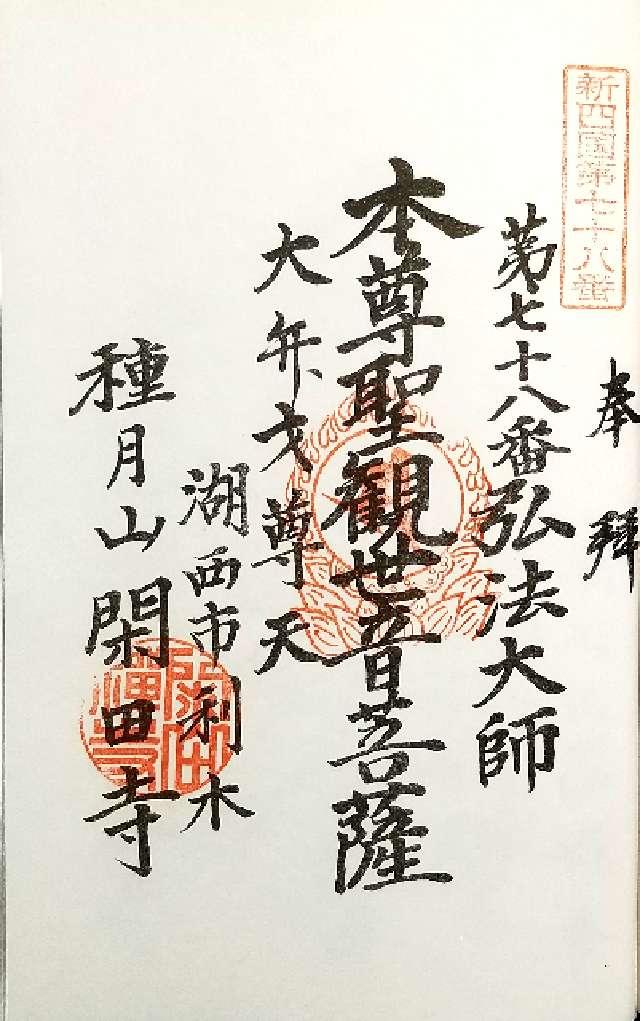 新四国第七十八番
奉拝
第七十八番弘法大師
本尊聖観世音菩薩
大弁才尊天
湖西市利木
種月山閑田寺